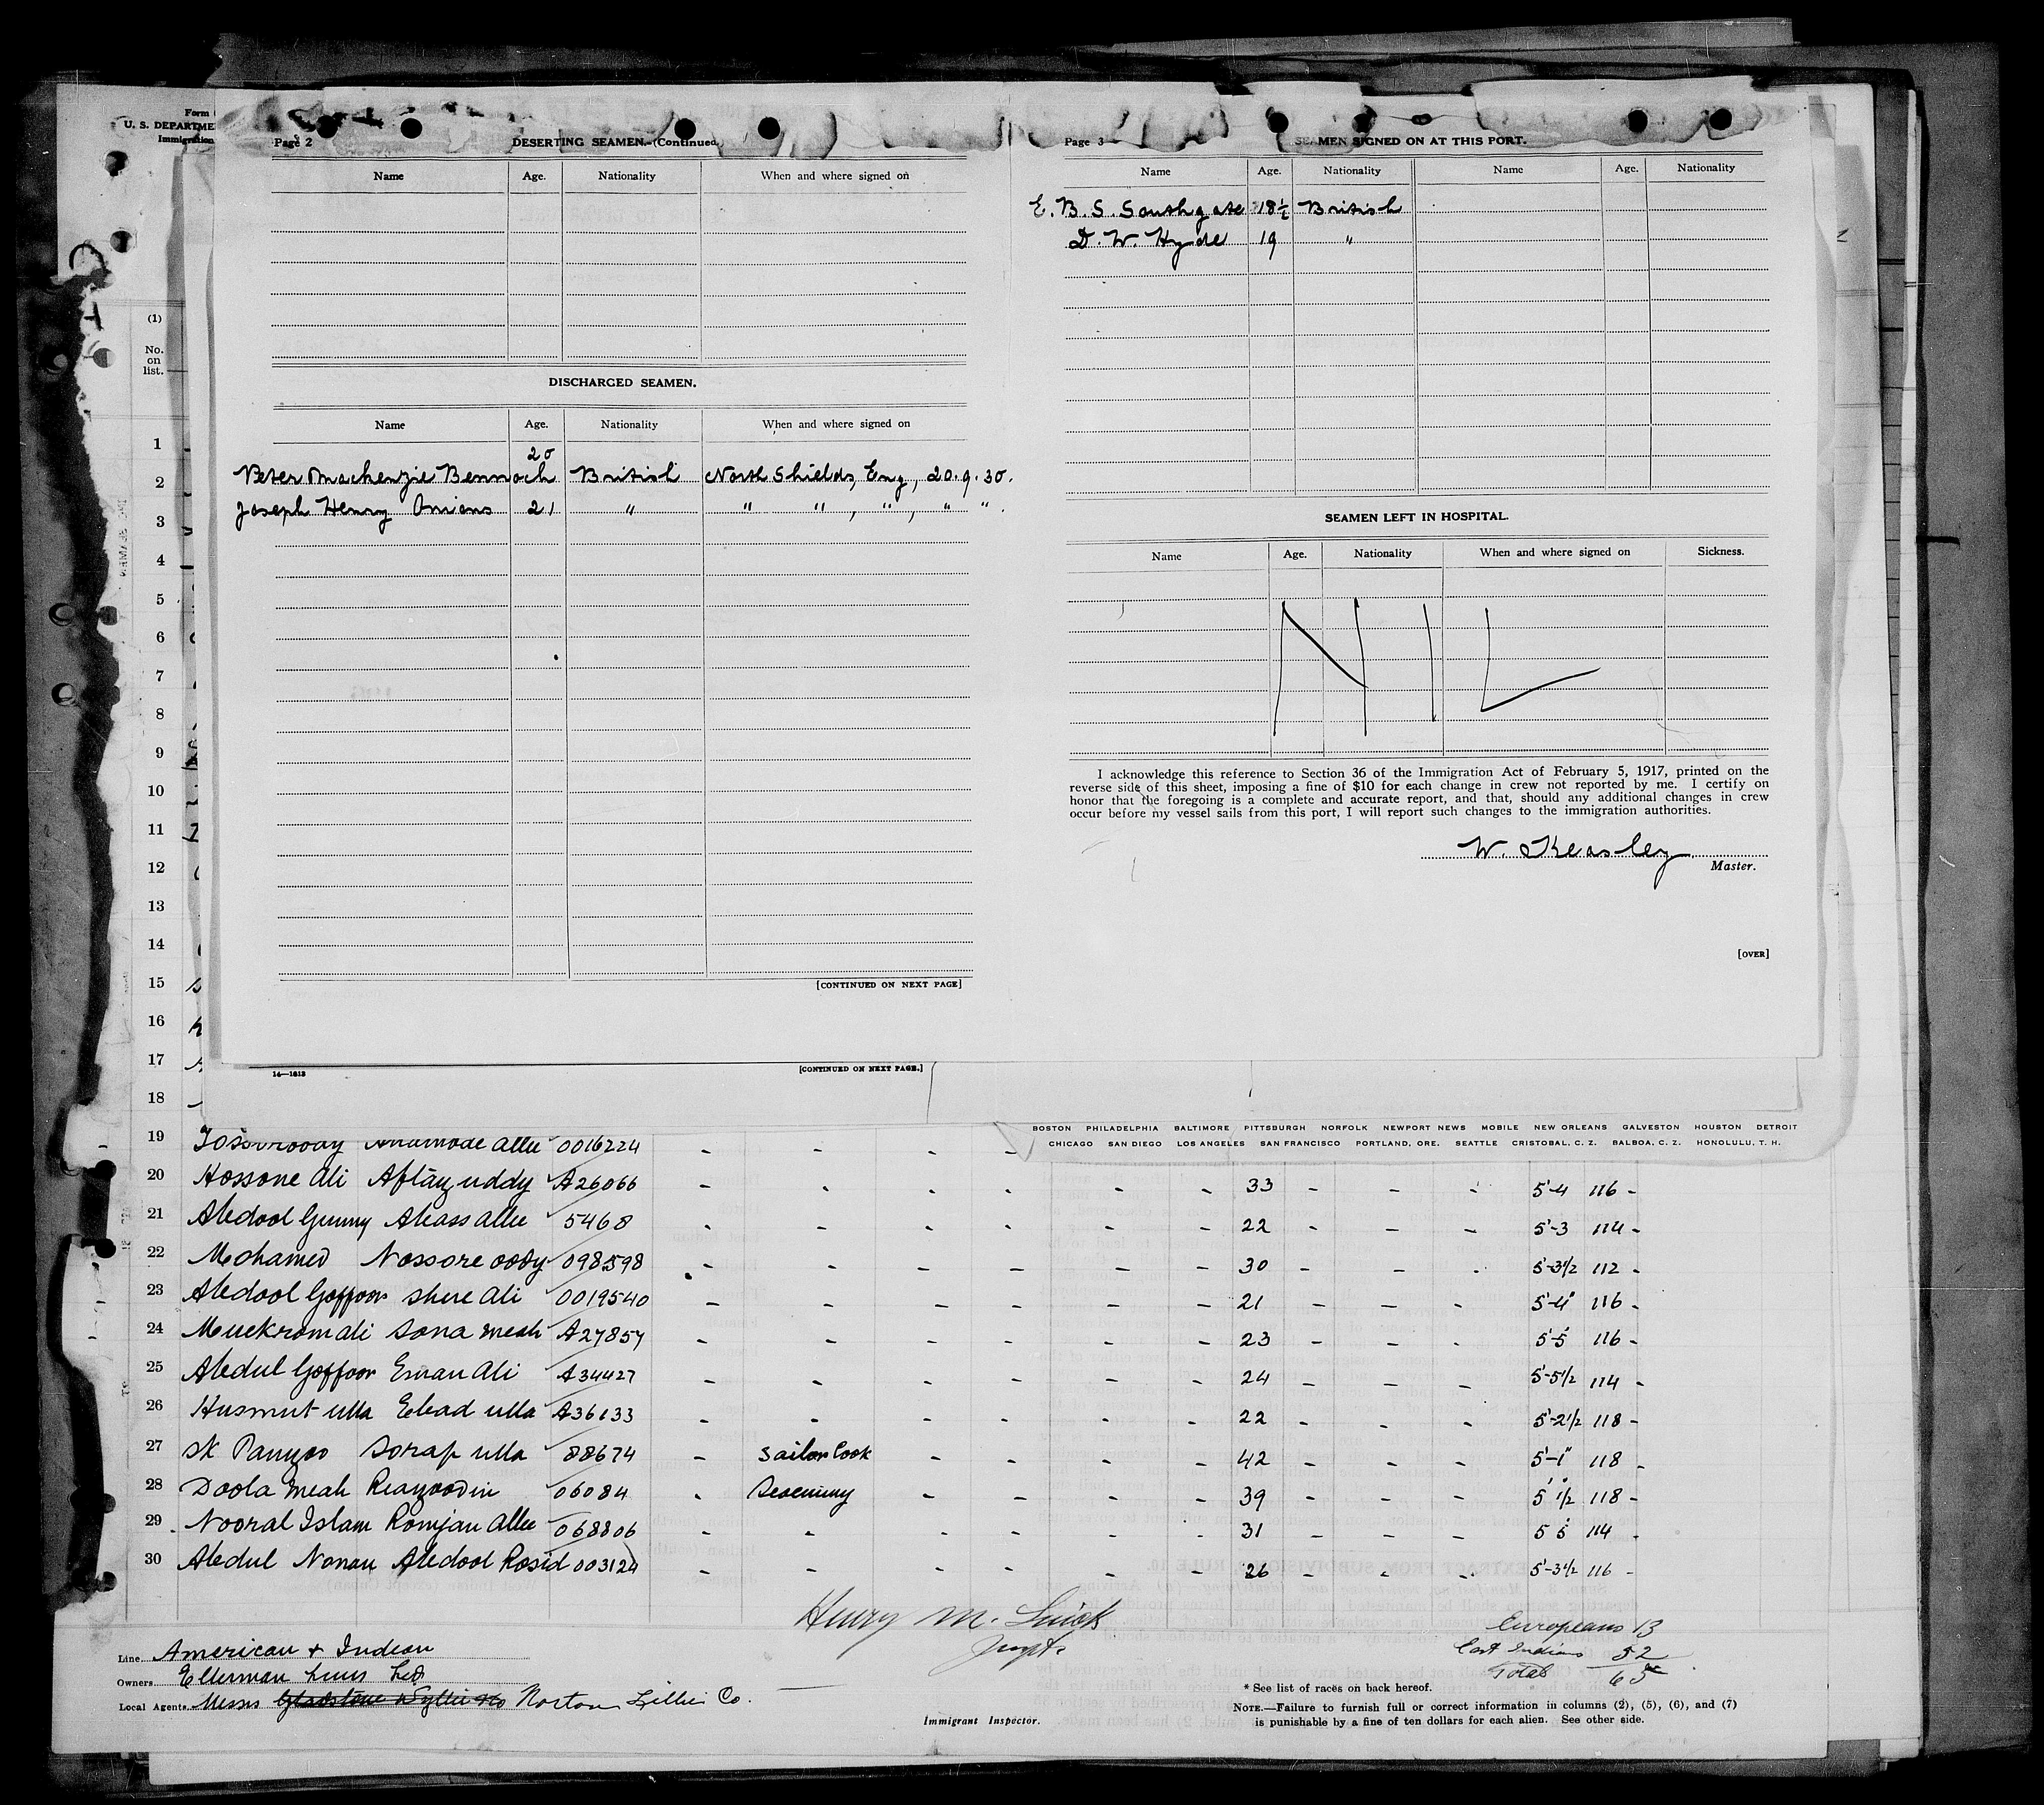 Form
U. S. DEPARTME
Immigration
(1)
No.
on
list.
1
2
3
4
5
6
7
8
9
10
11
12
13
14
15
16
17
18
Page 2
DESERTING SEAMEN.-(Continued.)
Name Age. Nationality When and where signed on
DISCHARGED SEAMEN.
Name Age. Nationality When and where signed on
Peter Mackenzie Bennoch 20 British North Shields, Eng, 20.9.30.
Joseph Henry Onions 21 " " " , " , " " .
[CONTINUED ON NEXT PAGE]
Page 3
SEAMEN SIGNED ON AT THIS PORT.
Name Age. Nationality Name Age. Nationality
E. B. S. Southgate 18½ British
D. W. Hyde 19 "
SEAMEN LEFT IN HOSPITAL.
Name Age. Nationality When and where signed on Sickness.
NIL
I acknowledge this reference to Section 36 of the Immigration Act of February 5, 1917, printed on the
reverse side of this sheet, imposing a fine of $10 for each change in crew not reported by me. I certify on
honor that the foregoing is a complete and accurate report, and that, should any additional changes in crew
occur before my vessel sails from this port, I will report such changes to the immigration authorities.
W. Keasley
Master.
[OVER]
14—1813
[CONTINUED ON NEXT PAGE.]
BOSTON PHILADELPHIA BALTIMORE PITTSBURGH NORFOLK NEWPORT NEWS MOBILE NEW ORLEANS GALVESTON HOUSTON DETROIT
CHICAGO SAN DIEGO LOS ANGELES SAN FRANCISCO PORTLAND, ORE. SEATTLE CRISTOBAL, C. Z. BALBOA, C. Z. HONOLULU, T. H.
19 Allee 0016224 - - - -
20 Hossone Ali Aftazuddy A26066 - - - - - - 33 - - - 5'-4 116 -
21 Abdool Gunny Abass Allee 5468 - - - - - - 22 - - - 5'-3 114 -
22 Mohamed Nossore oody 098598 - - - - - - 30 - - - 5'-3½ 112 -
23 Abdool Goffoor Shere Ali 0019540 - - - - - - 21 - - - 5'-4" 116 -
24 Muckrom Ali Sona Meah A27857 - - - - - - 23 - - - 5'-5 116 -
25 Abdul Goffoor Eman Ali A34427 - - - - - - 24 - - - 5'-5½ 114 -
26 Husmut ulla Ebad ulla A36133 - - - - - - 22 - - - 5'-2½ 118 -
27 Sk Panzoo Sorap ulla 88674 - Sailor Cook - - - - 42 - - - 5'-1" 118 -
28 Doola Meah Reazoodin 06084 - - - - - 39 - - - 5' ½ 118 -
29 Nooral Islam Romjan Allee 068806 - - - - - - 31 - - - 5 5 114 -
30 Abdul Nonau Abdool Rosid 003124 - - - - - - 26 - - - 5'-3½ 116 -
Henry M.
Line American & Indian
Owners Ellerman Lines Ltd
Local Agents Messrs Gladstone Wyllie & Co Norton Lillie Co.
Immigrant Inspector.
Europeans 13
East Indians 52
Total 65
* See list of races on back hereof.
NOTE.—Failure to furnish full or correct information in columns (2), (5), (6), and (7)
is punishable by a fine of ten dollars for each alien. See other side.